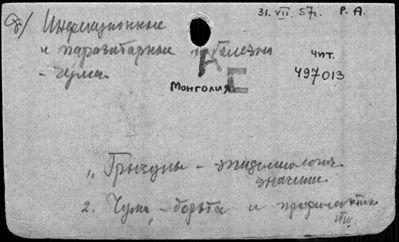 31. VII. 57г. Р. А.
Инфекционные
и паразитарные болезни
чит.
- Чума
497013
АЕ
Монголия
1. Грызуны - эпидемиологич.
значение
2. Чума - борьба и профилактика